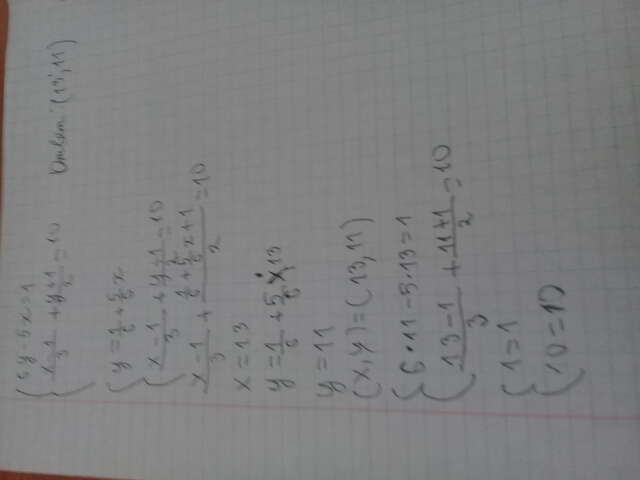 6y-5x=1
x-1/3 + y+1/2 =10 Ответ: (13; 11)
y = 1/6 + 5/6 x
x-1/3 + y+1/2 =10
x-1/3 + 1/6 + 5/6 x+1/2 =10
x=13
y = 1/6 + 5/6 · 13
y = 11
(x,y)=(13,11)
6·11-5·13=1
13-1/3 + 11+1/2 =10
1=1
10=10